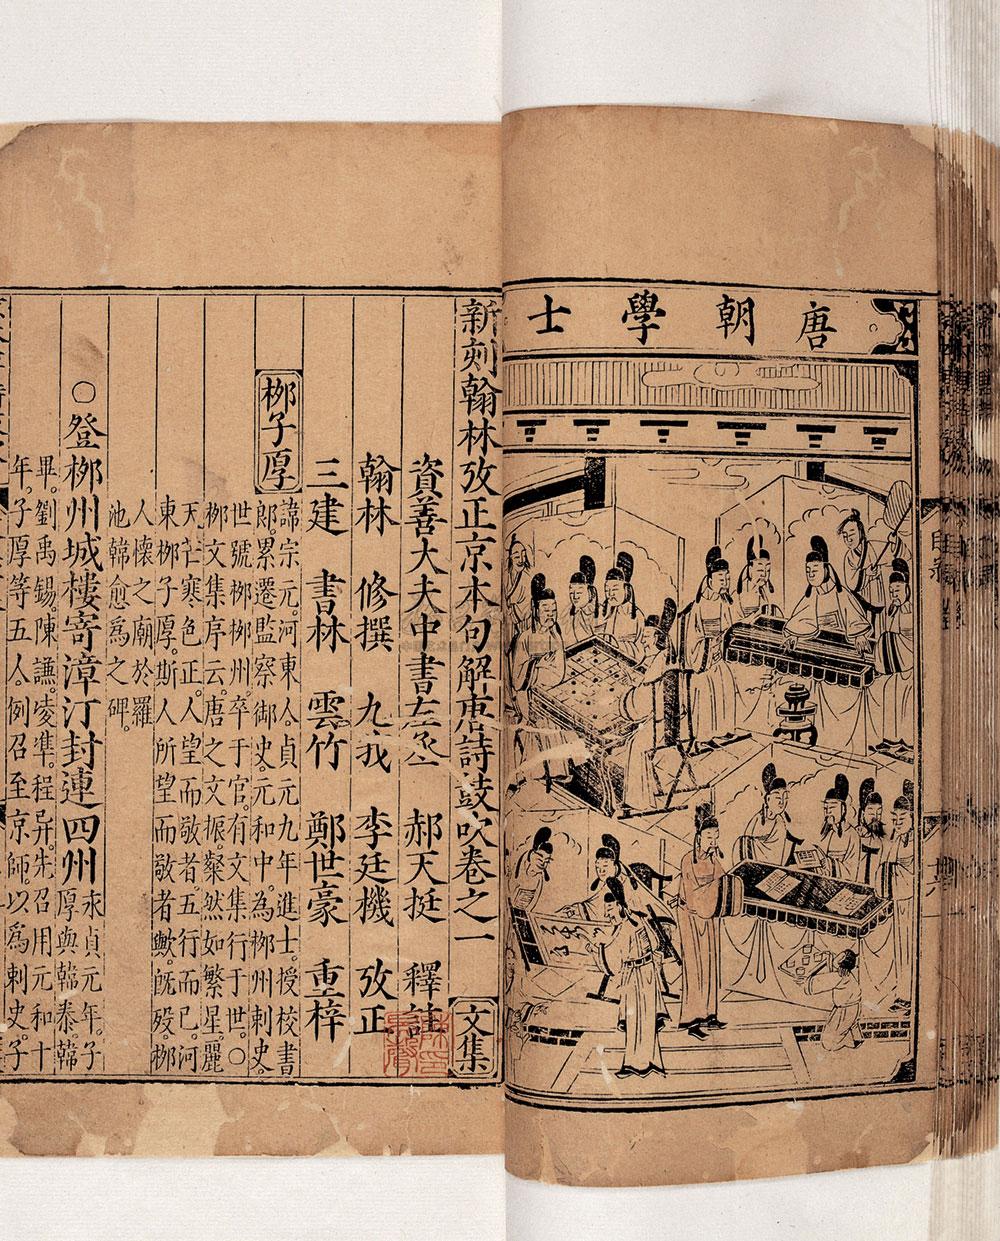 唐朝學士
新刻翰林攷正京本句解唐詩鼓吹卷之一 文集
資善大夫中書左丞 郝天挺 釋註
翰林 修撰 九我 李廷機 攷正
三建 書林 雲竹 鄭世豪 重梓
柳子厚
諱宗元。河東人。貞元九年進士。授校書
郎。累遷監察御史。元和中。為柳州刺史。
世號柳柳州。卒于官。有文集行于世。○
柳文集序云。唐之文振。粲然如繁星。麗
天。芒寒色正。人望而敬者。五行而已。河
東柳子厚。斯人所望而敬者歟。旣歿。柳
人懷之廟於羅
池韓愈爲之碑。
○登柳州城樓寄漳汀封連四州
永貞元年。子
厚與韓泰韓
畢。劉禹錫。陳謙。凌準。程异。先召用元和十
年。子厚等五人。例召至京師。以爲刺史。子